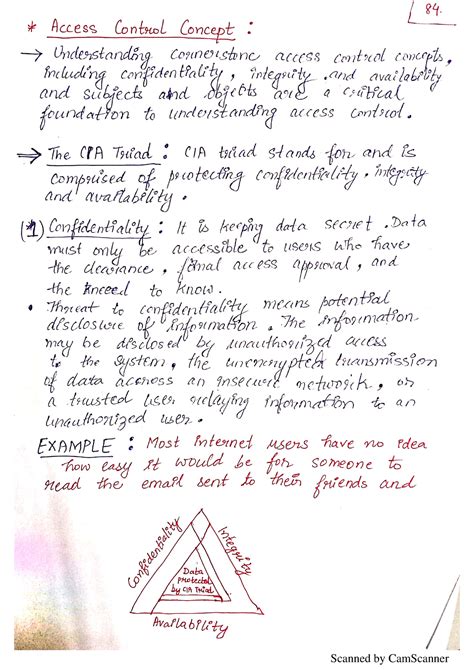 84.
* Access Control Concept :
→ Understanding cornerstone access control concepts,
including confidentiality, integrity and availability
and subjects and objects are a critical
foundation to understanding access control.
⇒ The CIA Triad : CIA triad stands for and is
comprised of protecting confidentiality, integrity
and availability.
(*1) Confidentiality : It is keeping data secret. Data
must only be accessible to users who have
the clearance, formal access approval, and
the kneeed to know.
• Threat to confidentiality means potential
disclosure of information. The information
may be disclosed by unauthorized access
to the system, the unencrypted transmission
of data across an insecure network, or
a trusted user relaying information to an
unauthorized user.
EXAMPLE : Most Internet users have no idea
how easy it would be for someone to
read the email sent to their friends and
Confidentiality
Integrity
Data
protected
by CIA Triad
Availability
Scanned by CamScanner